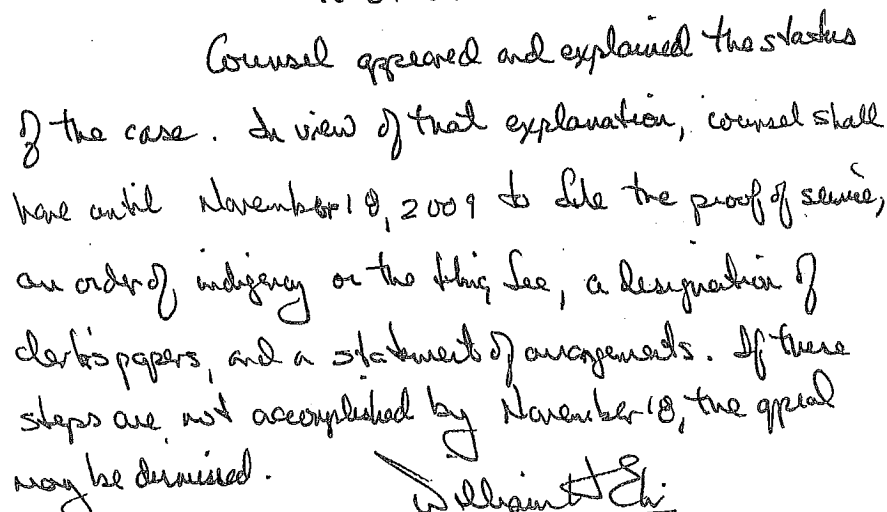 Counsel appeared and explained the status
of the case. In view of that explanation, counsel shall
have until November 18, 2009 to file the proof of service,
an order of indigency or the filing fee, a designation of
clerk's papers, and a statement of arrangements. If these
steps are not accomplished by November 18, the appeal
may be dismissed.
William H